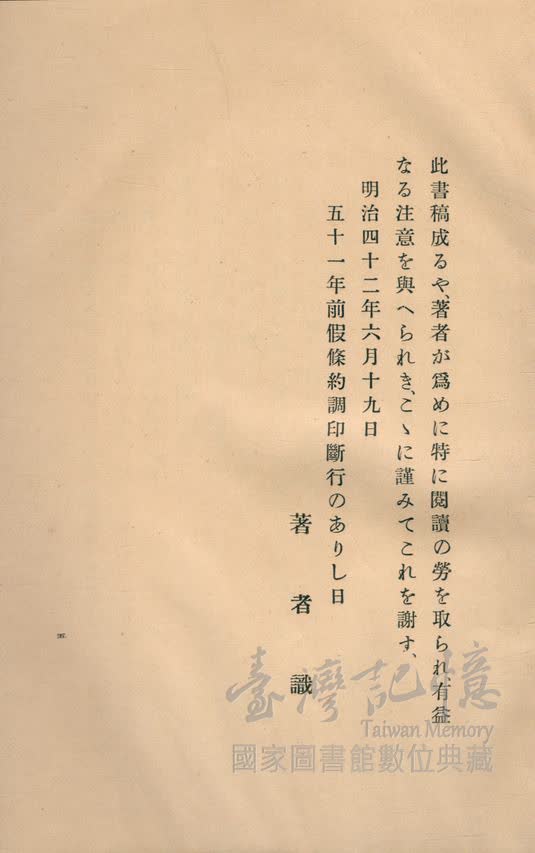 此書稿成るや、著者が爲めに特に閱讀の勞を取られ、有益
なる注意を與へられき、こゝに謹みてこれを謝す、
明治四十二年六月十九日
五十一年前假條約調印斷行のありし日
著者識
五
臺灣記憶
Taiwan Memory
國家圖書館數位典藏